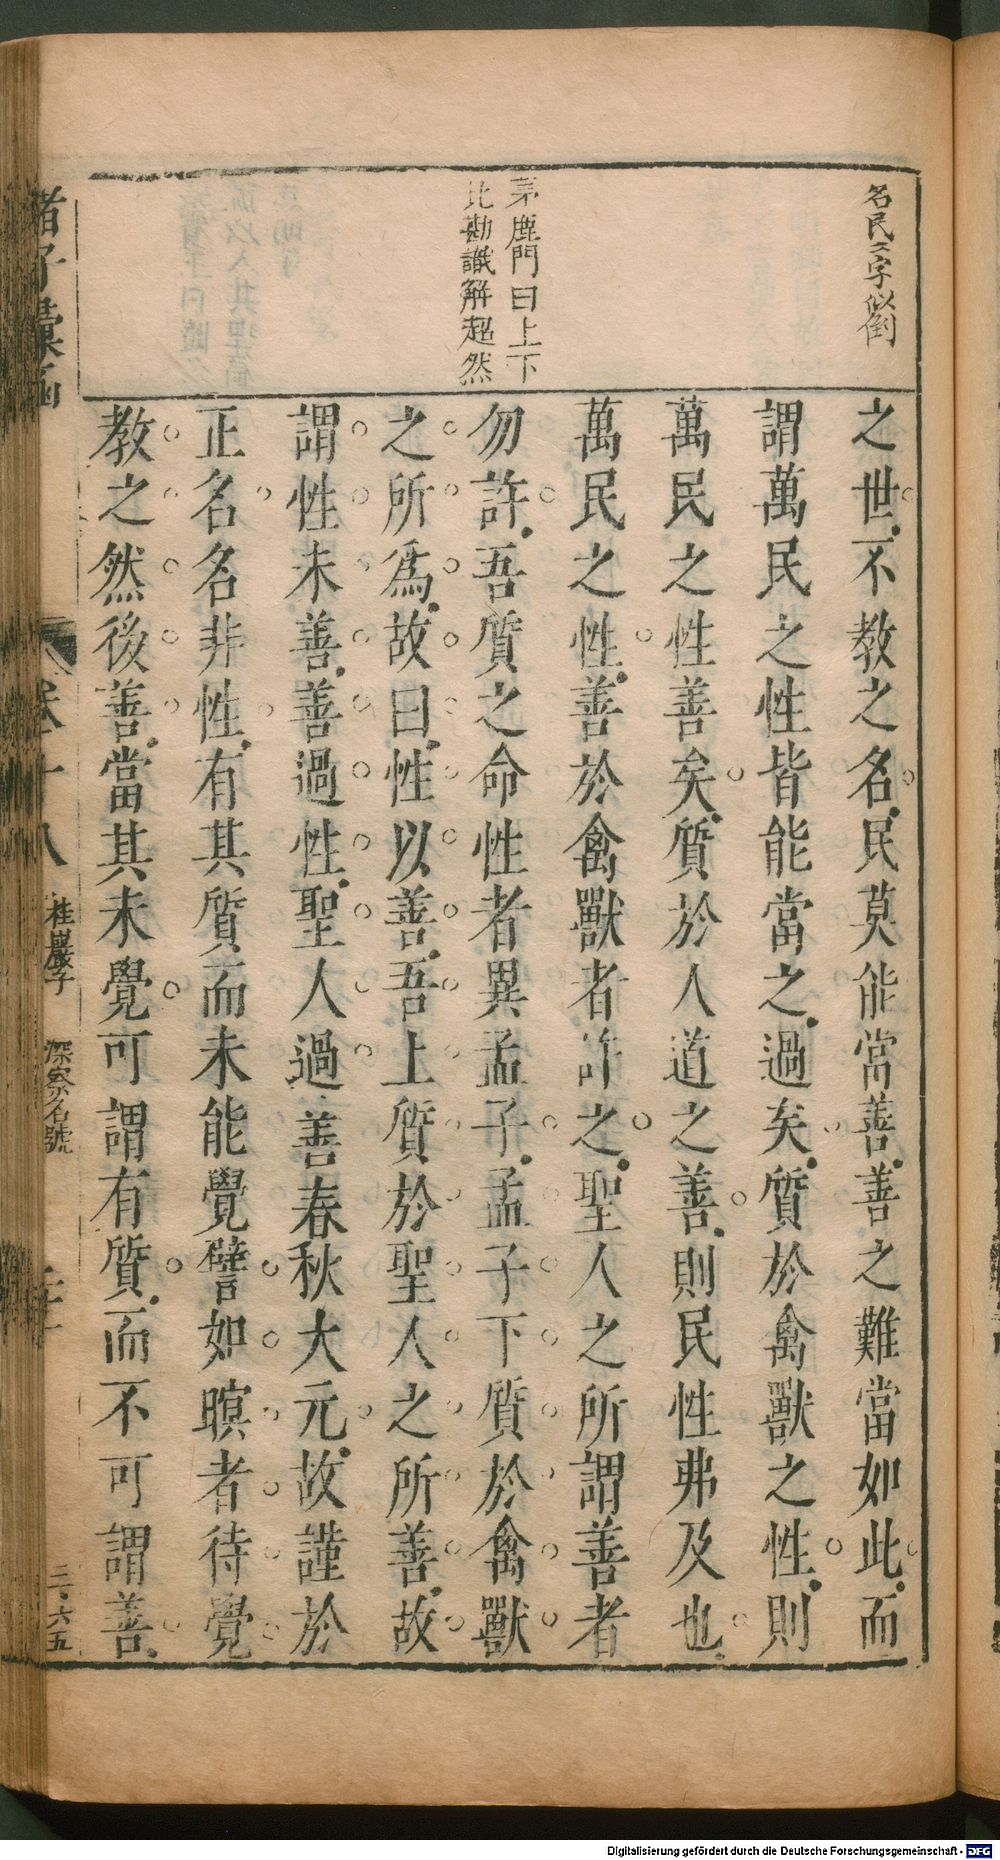 名民二字似倒
茅鹿門曰上下
比勘識解超然
之世不教之名民莫能當善善之難當如此而
謂萬民之性皆能當之過矣質於禽獸之性則
萬民之性善矣質於人道之善則民性弗及也
萬民之性善於禽獸者許之聖人之所謂善者
勿許吾質之命性者異孟子孟子下質於禽獸
之所爲故曰性以善吾上質於聖人之所善故
謂性未善善過性聖人過善春秋大元故謹於
正名名非性有其質而未能覺譬如瞑者待覺
教之然後善當其未覺可謂有質而不可謂善
諸子彙函
卷十八
桂巖子
深察名號
三·六五
Digitalisierung gefördert durch die Deutsche Forschungsgemeinschaft - DFG